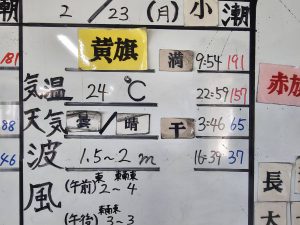 潮
2/23(月)小潮
181
黄旗
満 9:54 191
気温 24℃ 22:59 157
赤旗
天気 曇/晴 干 3:46 65
88
波 1.5~2m 16:39 37
46
風 (午前) 東 2~4 東南東
長
(午後) 東南東 3~3
大